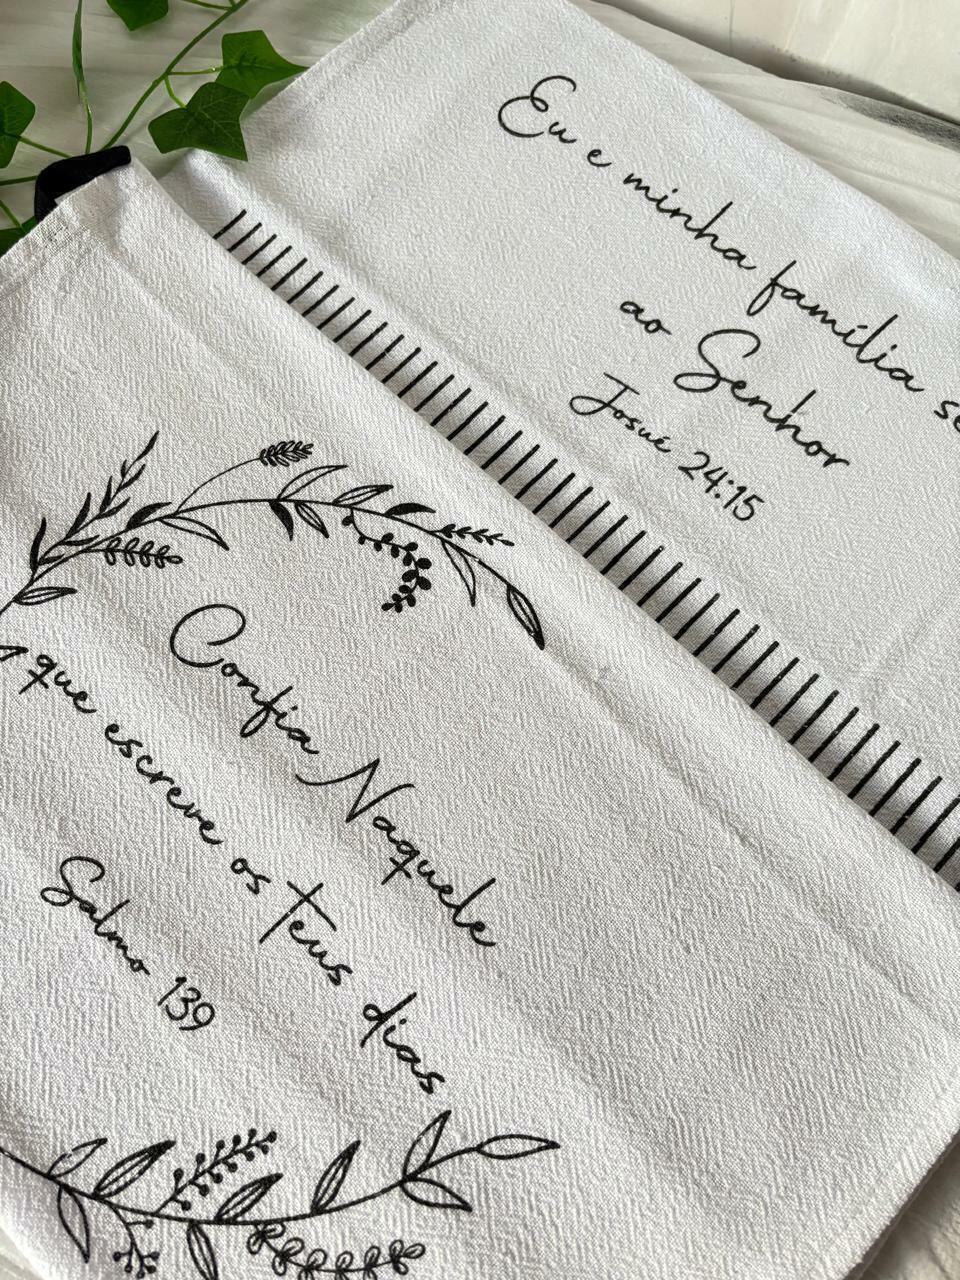 Eu e minha família se
ao Senhor
Josué 24:15
Confia Naquele
que escreve os teus dias
Salmo 139